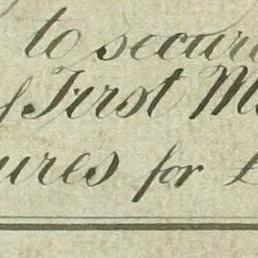 to secur
First M
ures for £